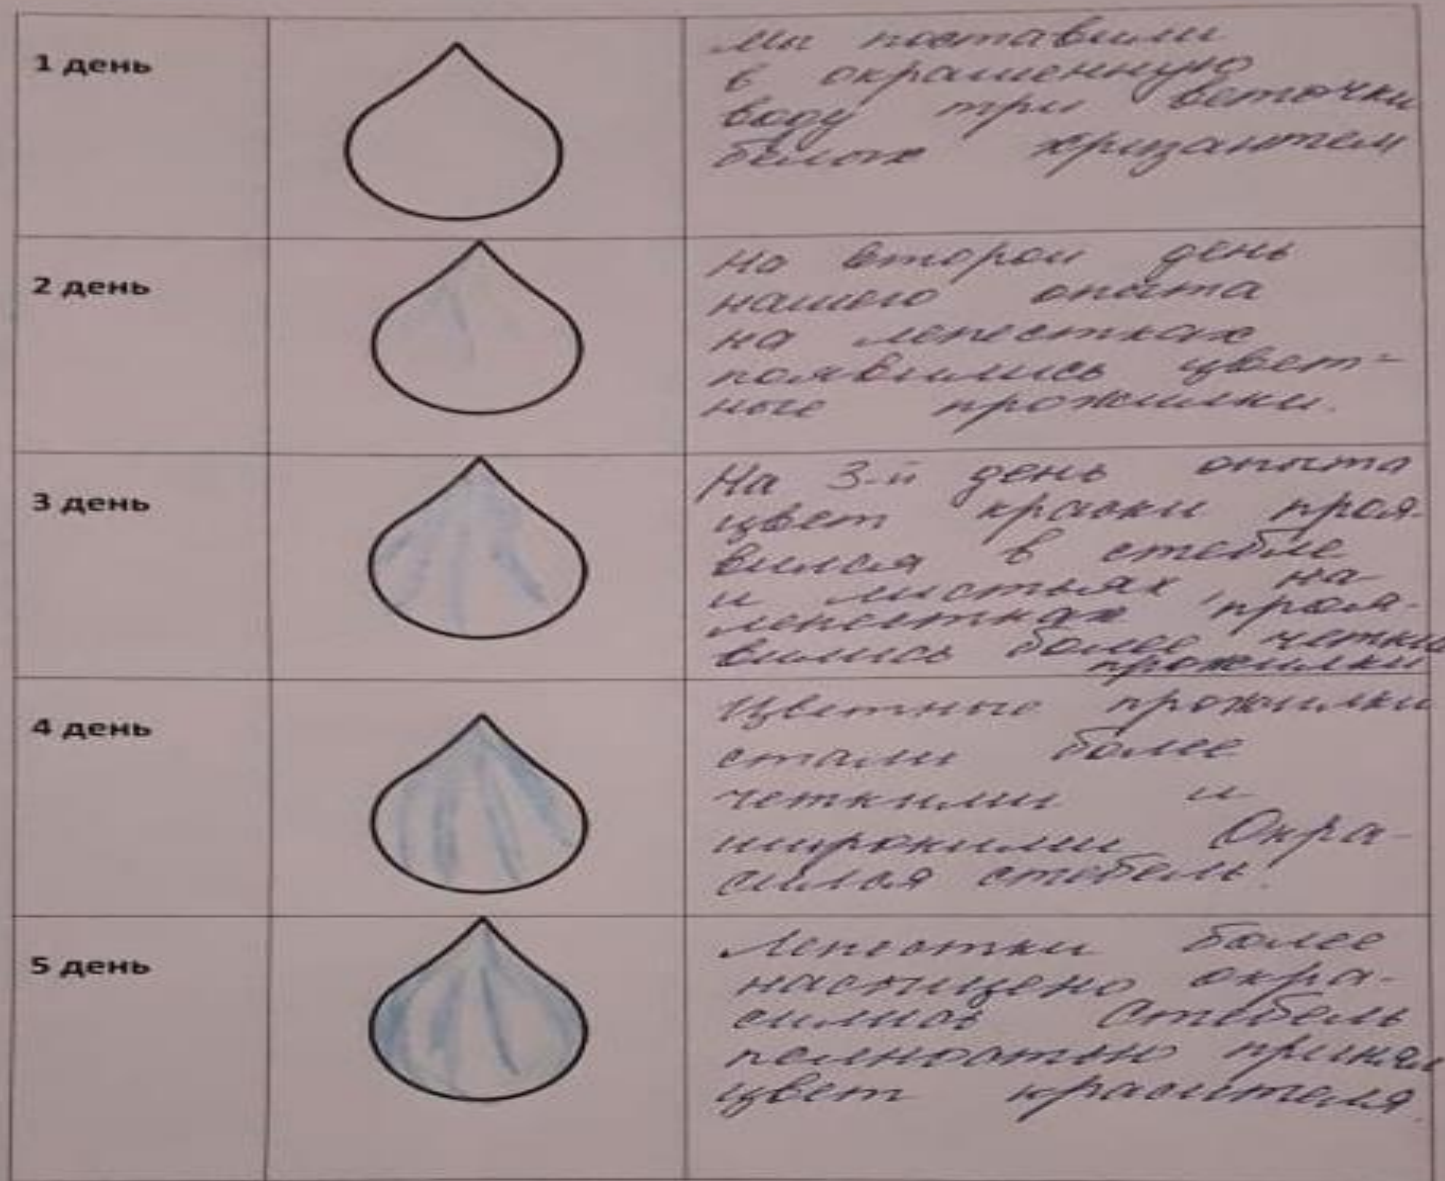 1 день
Мы поставили
в окрашенную
воду три веточки
белых хризантем
2 день
На второй день
нашего опыта
на лепестках
появились цвет=
ные прожилки.
3 день
На 3-й день опыта
цвет краски проя-
вился в стебле
и листьях, на
лепестках проя-
вились более четкие
прожилки
4 день
Цветные прожилки
стали более
четкими и
широкими Окра-
сился стебель.
5 день
Лепестки более
насыщено окра-
сились Стебель
полностью принял
цвет красителя.